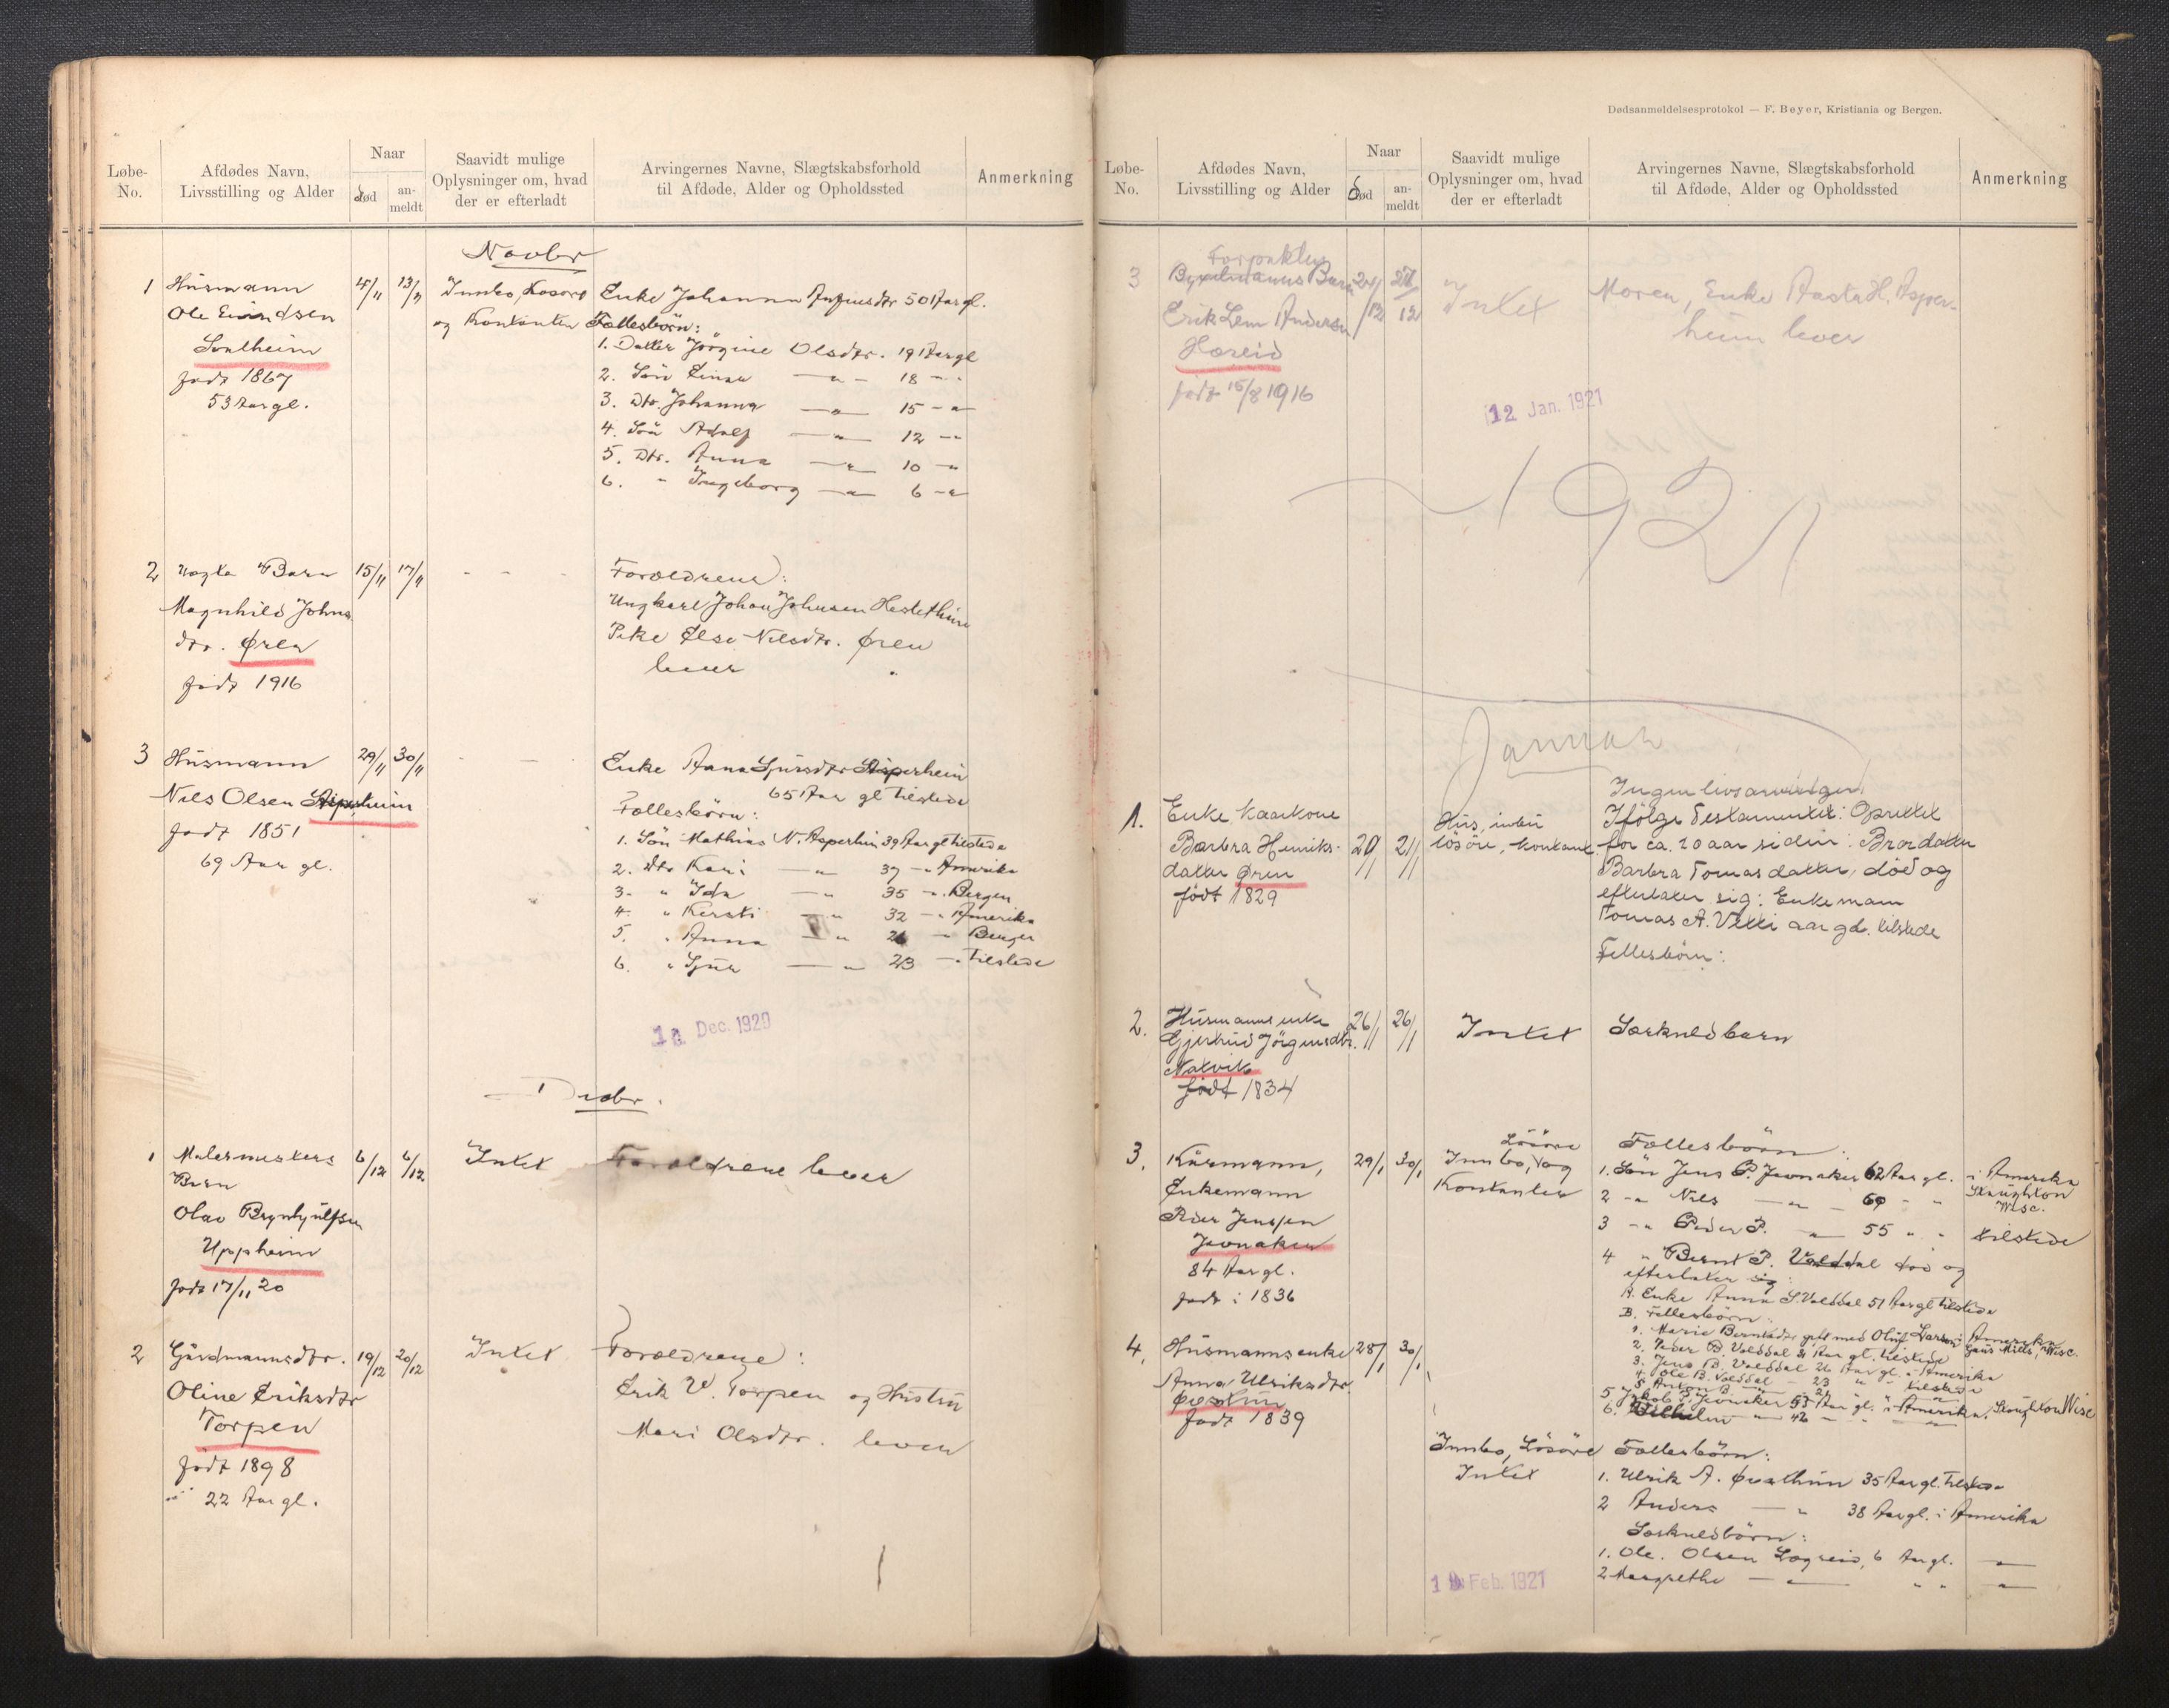 Løbe-
No.
Afdødes Navn,
Livsstilling og Alder
Naar
død
an-
meldt
Saavidt mulige
Oplysninger om, hvad
der er efterladt
Arvingernes Navne, Slægtskabsforhold
til Afdøde, Alder og Opholdssted
Anmerkning
Novbr
1 Husmann 4/11 13/11 Innbo, Løsøre Enke Johanna 50 Aar gl.
Ole Eivindsen og Kontanter Fællesbörn:
Svalheim 1. Datter Jørgine Olsdtr. 19 Aar gl
født 1867 2. Sön Einar — " — 18 - "
53 Aar gl. 3. Dtr. Johanna — " — 15 - "
4. Sön Adolf — " — 12 - "
5. Dtr. Anna — " — 10 - "
6. " Ingeborg — " — 6 - "
2 Barn 15/11 17/11 - - - Forældrene:
Magnhild Johns Ungkarl Johan Johnsen
dtr. Øren Pike Else Nilsdtr. Øren
født 1916 lever
3 Husmann 29/11 30/11 - - Enke Anna Sjursdtr Asperheim
Nils Olsen Asperheim 65 Aar gl tilstede
født 1851 Fællesbörn:
69 Aar gl. 1. Sön Mathias N. Asperheim 39 Aar gl tilstede
2. Dtr Kari — " — 37 - " Amerika
3. " Ida — " — 35 - " Bergen
4. " Kersti — " — 32 - " Amerika
5. " Anna — " — 26 - " Bergen
6. " Sjur — " — 23 - " tilstede
Dec. 1920
Decbr.
1 Malermesters 6/12 6/12 Intet Forældrene lever
Barn
Olav Brynhjulfsen
Uppheim
født 17/11 20
2 Gårdmannsdtr. 19/12 20/12 Intet Forældrene:
Oline Eriksdtr Erik V. Torpen og Hustru
Torpen Mari Olsdtr. lever
født 1898
22 Aar gl.
Dødsanmeldelsesprotokol — F. Beyer, Kristiania og Bergen.
Løbe-
No.
Afdødes Navn,
Livsstilling og Alder
Naar
død
an-
meldt
Saavidt mulige
Oplysninger om, hvad
der er efterladt
Arvingernes Navne, Slægtskabsforhold
til Afdøde, Alder og Opholdssted
Anmerkning
Forpakter
3 Bygselmanns Barn 24/12 27/12 Intet Moren, Enke Aasta H. Asper-
Erik Lem Andersen heim lever
Hæreid
født 15/8 1916
12 Jan. 1921
1921
Januar
Ingen livsarvinger
1. Enke Kaarkone 20/1 21/1 Hus, intet Ifölge Testamentet: Oprettet
Barbra Henriks- lösöre, kontant. for ca. 20 aar siden: Brordatter
datter Øren Barbra Tomasdatter, död og
født 1829 efterlater sig: Enkemann
Tomas A. Vetti aar gl. tilstede
Fellesbörn:
2. Husmannsenke 26/1 26/1 Intet Særkuldbarn
Gjertrud Jörgensdtr.
Natvik
født 1834
3. Kårmann, 29/1 30/1 Innbo, Lösöre og Fællesbörn:
Enkemann Kontanter 1. Sön Jens P. Jevnaker 62 Aar gl. i Amerika
Peder Jenssen 2 - " Nils — " — 60 - " Stoughton Wisc.
Jevnaker 3 - " Peder P. — " — 55 " " tilstede
84 Aar gl. 4 " Bernt P. Volddal död og
født i 1836 efterlater sig:
A. Enke Anna S. Volddal 51 Aar gl tilstede
B. Fellesbörn:
1. Marie Berntsdtr gift med Oluf Larsen i Amerika
2. Peder B. Volddal 31 Aar gl. tilstede
3. Jens B. Volddal 26 Aar gl. i Amerika
4. Ole B. Volddal — 23 " " tilstede
5 Anton B. — " — 21
5 Jakob P. Jevnaker 53 Aar gl. i Amerika, Stoughton Wisc
6. Vilhelm — " — 46 — " —
4. Husmannsenke 28/1 30/1
Anna Ulriksdtr.
Øvstun
født 1839
Innbo, Lösöre Fællesbörn:
Intet 1. Ulrik A. Øvsthun 35 Aar gl. tilstede
2 Anders — " 38 Aar gl. i Amerika
Særkuldbörn:
1. Ole Olsen Lægreid, 6 Aar gl. — " —
2 Margrethe — " — " " — " —
Feb. 1921